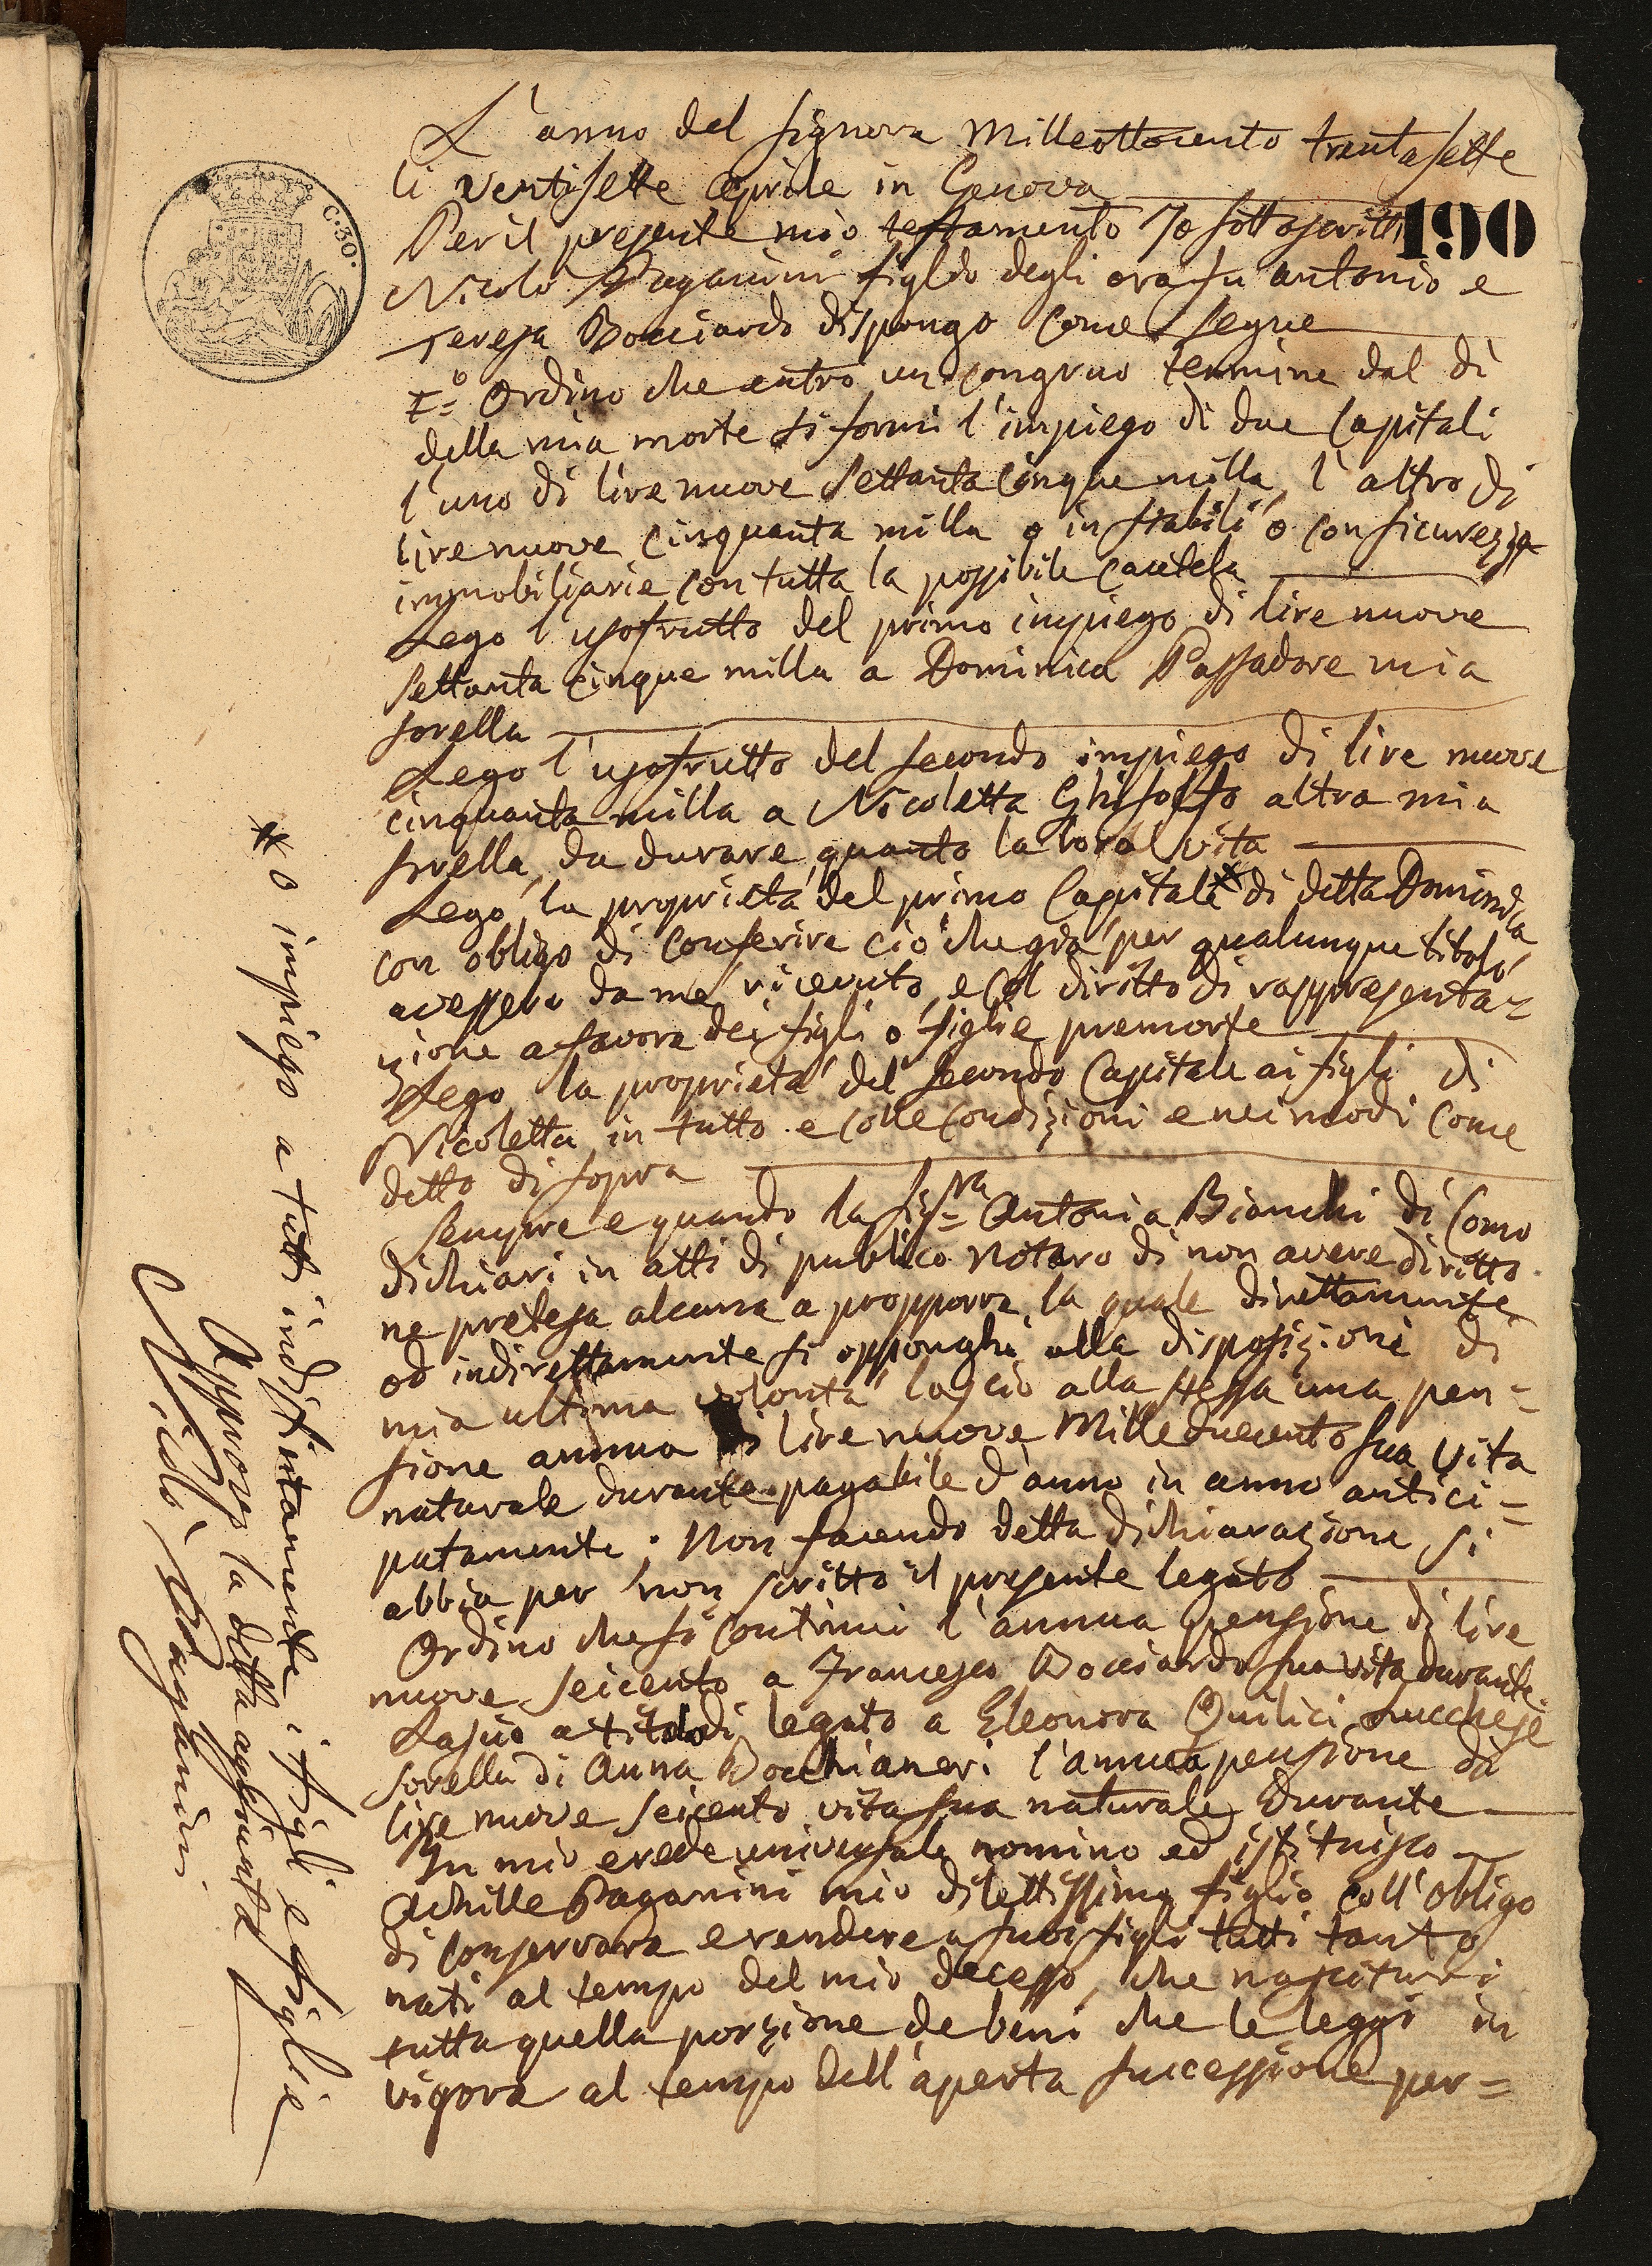 L'anno del Signore Milleottocento trentasette
li ventisette Aprile in Genova
190
C. 30.
Per il presente mio testamento Io sottoscritto
Nicolò Paganini figlio degli ora fu Antonio e
Teresa Bocciardo dispongo come segue
I=º Ordino che entro un congruo termine dal dì
della mia morte si formi l'impiego di due Capitali
l'uno di lire nuove Settanta Cinque milla, l'altro di
lire nuove Cinquanta milla o in stabili o con sicurezze
immobiliarie con tutta la possibile Cautela
Lego l'usofrutto del primo impiego di lire nuove
Settanta Cinque milla a Dominica Passadore mia
sorella
Lego l'usofrutto del secondo impiego di lire nuove
cinquanta milla a Nicoletta Ghisolfo altra mia
sorella, da durare quanto la loro vita
Lego la proprietà del primo Capitale * di detta Dominica
con obligo di Conferire ciò che già per qualunque titolo
avessero da me ricevuto, e col diritto di rappresenta=
zione a favore dei figli o figlie premorte
Lego la proprietà del Secondo Capitale ai figli di
Nicoletta in tutto e colle Condizioni e nei modi come
detto di sopra
Sempre e quando la Sig=ra Antonia Bianchi di Como
dichiari in atti di publico Notaro di non avere diritto
ne pretesa alcuna a propporre la quale direttamente
od indirettamente si opponghi alla disposizioni di
mia ultima volontà lascio alla stessa una pen=
sione annua di lire nuove Mille duecento sua vita
naturale durante pagabile d'anno in anno antici=
patamente; Non facendo detta dichiarazione si
abbia per non scritto il presente legato
Ordino che si Continui l'annua pensione di lire
nuove seicento a Francesco Bocciardo sua vita durante
Lascio a titolo di legato a Eleonora Quilici Lucchese
sorella di Anna Bocchianeri l'annua pensione di
lire nuove seicento vita sua naturale durante
In mio erede universale nomino ed istituisco
Achille Paganini mio dilettissimo figlio coll'obligo
di conservare e rendere a suoi figli tutti tanto
nati al tempo del mio decesso, che nascituri
tutta quella porzione de beni che le leggi in
vigore al tempo dell'aperta successione per=
* o impiego a tutti indistintamente i figli e figlie
Approvo la detta aggiunta
Nicolò Paganini